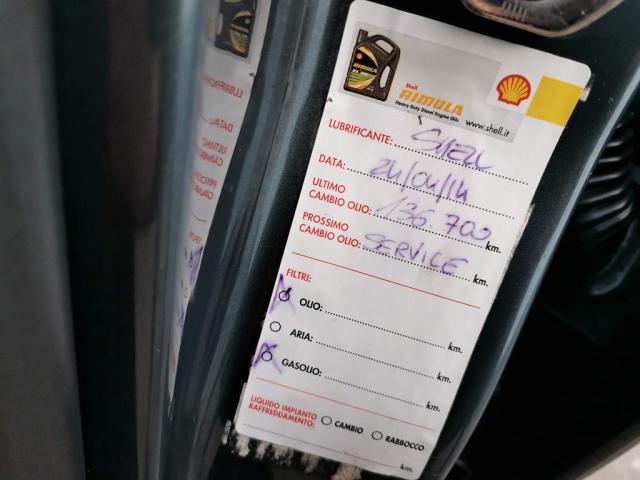 Shell
RIMULA
Heavy Duty Diesel Engine Oils
www.shell.it
LUBRIFICANTE: SHELL
DATA: 24/04/14
ULTIMO
CAMBIO OLIO: 136 700 km.
PROSSIMO
CAMBIO OLIO: SERVICE km.
FILTRI:
OLIO: km.
ARIA: km.
GASOLIO: km.
LIQUIDO IMPIANTO
RAFFREDDAMENTO: CAMBIO RABBOCCO
km.